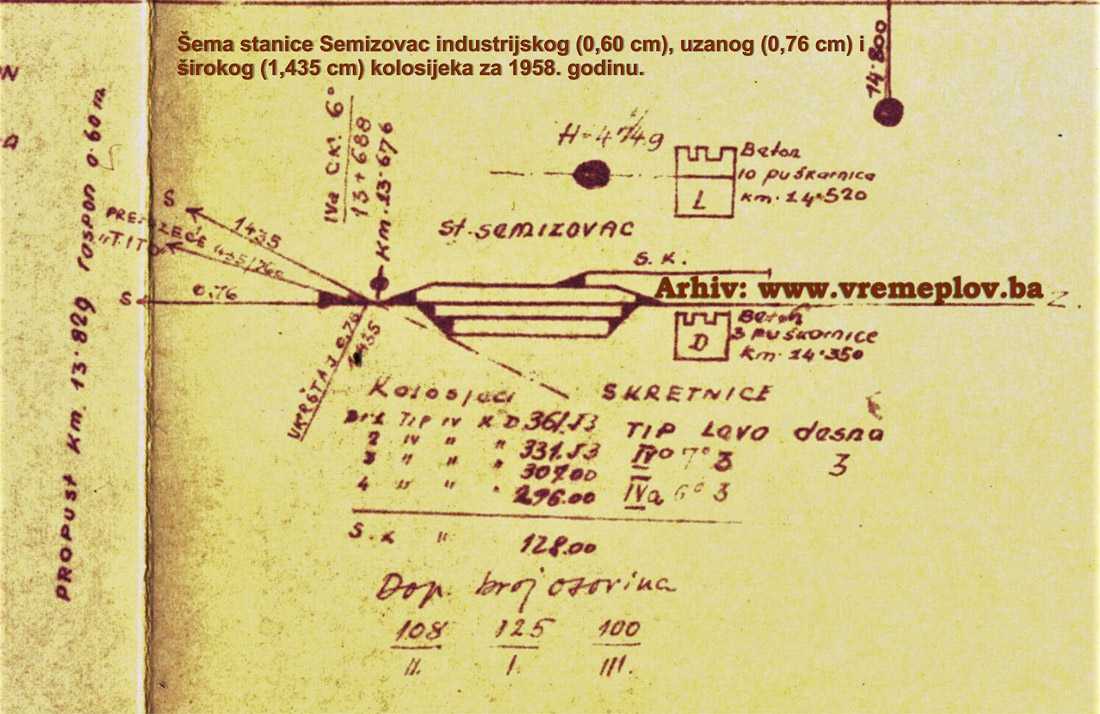 Šema stanice Semizovac industrijskog (0,60 cm), uzanog (0,76 cm) i
širokog (1,435 cm) kolosijeka za 1958. godinu.
14·800
PROPUST Km. 13·829 raspon 0·60 m
IVa CK! 6°
13+688
Km. 13·676
Beton
10 puškarnica
km. 14·520
L
S
1435
"TITO"
St. SEMIZOVAC
S. K.
S
0.76
Arhiv: www.vremeplov.ba
Z.
UKRŠTAJ 0.76
1435
Beton
3 puškarnice
Km. 14·350
D
Kolosjeci
SKRETNICE
TIP IV K D 361.53
2 IV " " 331.53
3 " " " 307.00
4 " " " 296.00
TIP Levo desna
7° 3 3
IVa 6° 3
S. K " 128.00
Dop. broj osovina
108 125 100
II. I. III.